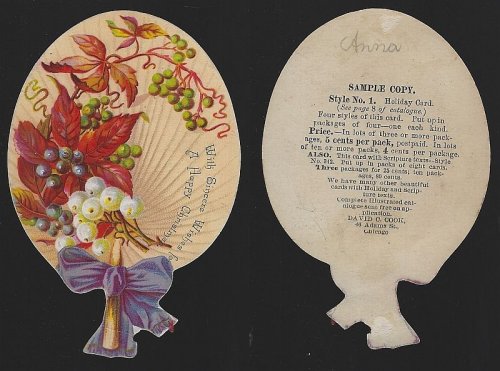 With Sincere Wishes for
A Happy Christmas
Anna
SAMPLE COPY.
Style No. 1. Holiday Card.
(See page 8 of catalogue.)
Four styles of this card. Put up in
packages of four—one each kind.
Price.—In lots of three or more pack-
ages, 5 cents per pack, postpaid. In lots
of ten or more packs, 4 cents per package.
ALSO. This card with Scripture texts—Style
No. 312. Put up in packs of eight cards.
Three packages for 25 cents; ten pack-
ages, 80 cents.
We have many other beautiful
cards with Holiday and Scrip-
ture texts.
Complete Illustrated cat-
alogue sent free on ap-
plication.
DAVID C. COOK,
46 Adams St.,
Chicago